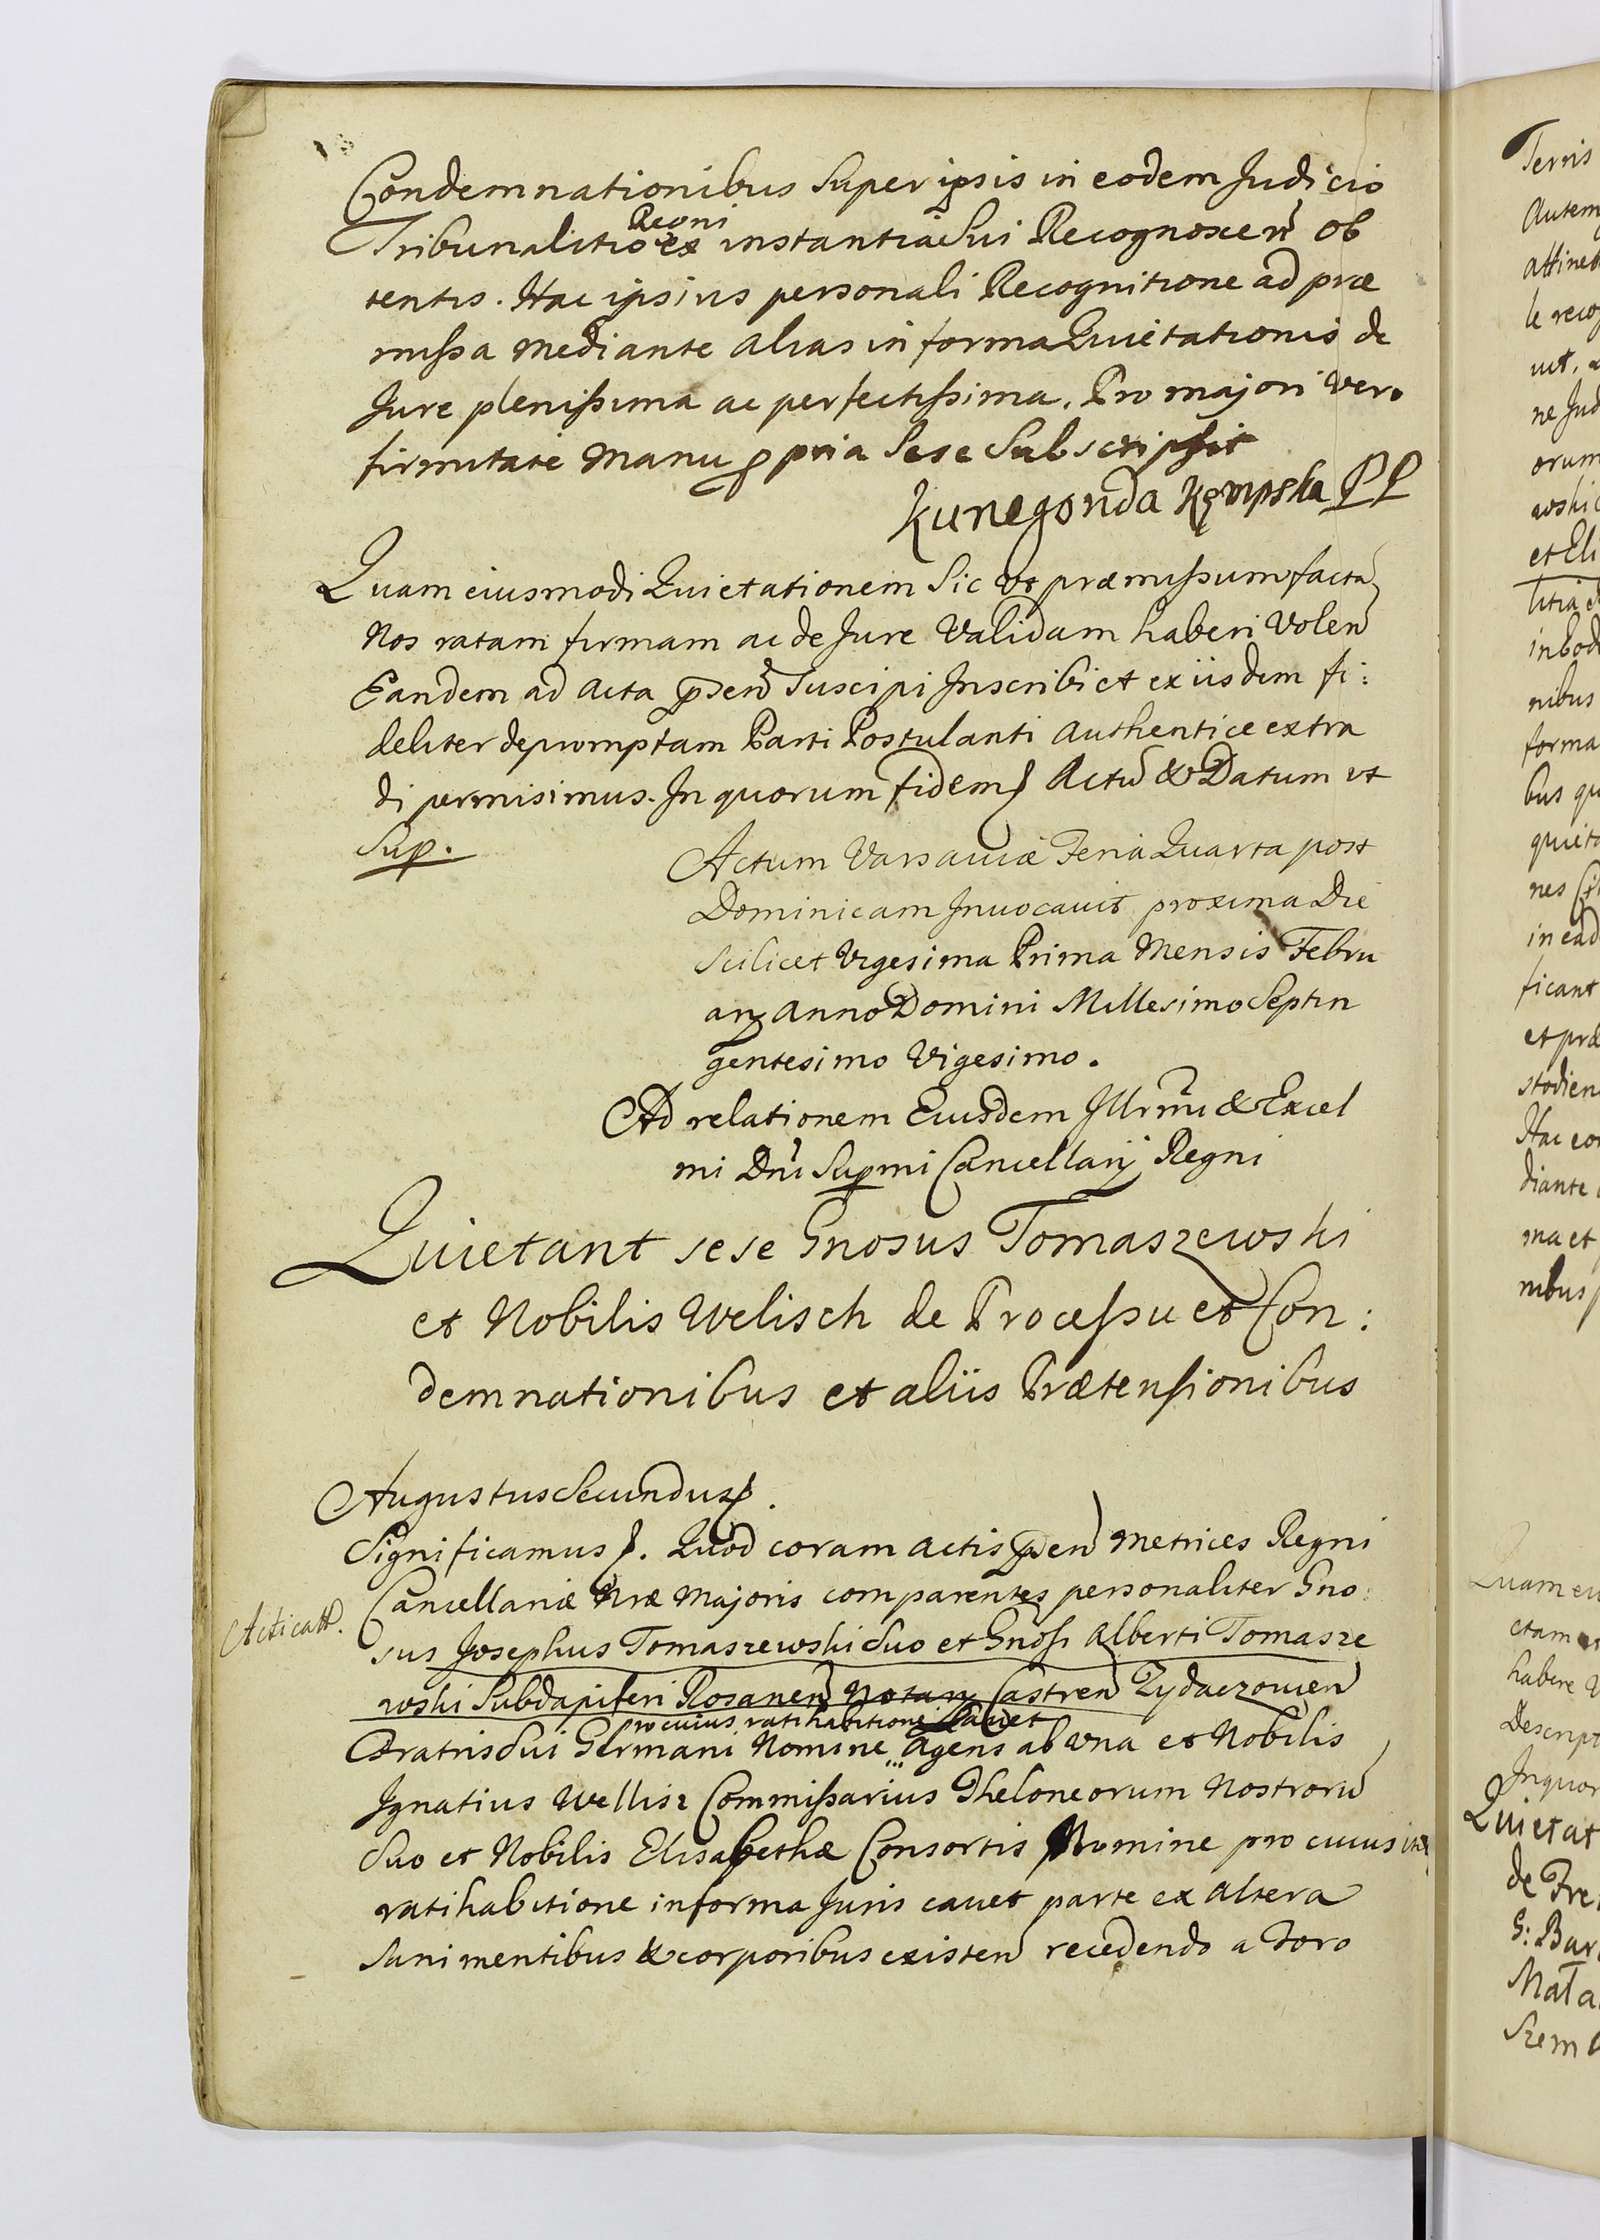 Condemnationibus Super ipsis in eodem Judicio
Regni
Tribunalitio ex instantia Sui Recognoscen Ob
tentis. Hac ipsius personali Recognitione ad præ
missa mediante alias in forma Quietationis de
Jure plenissima ac perfectissima. Pro majori vero
firmitate manu ppria Sese Subscripsit
Kunegonda Kępska PP
Quam eiusmodi Quietationem Sic ut præmissum facta
Nos ratam firmam ac de Jure Validam haberi Volen
Eandem ad Acta psen Suscipi Inscribi et ex iisdem fi:
deliter depromptam Parti Postulanti Authentice extra
di permisimus. In quorum fidem Actu & Datum ut
Sup.
Actum Varsaviæ Feria Quarta post
Dominicam Invocavit proxima Die
Scilicet Vigesima Prima Mensis Febru
arij Anno Domini Millesimo Septin
gentesimo Vigesimo.
Ad relationem Eiusdem Illrmi & Excel
mi Dni Supmi Cancellarij Regni
Quietant sese Gnosus Tomaszewski
et Nobilis Welisch de Processu et Con:
demnationibus et aliis Prætensionibus
Augustus Secundus.
Significamus. Quod coram actis psen Metrices Regni
Cancellariæ Nræ Majoris comparentes personaliter Gno:
Acticatt.
sus Josephus Tomaszewski Suo et Gnosi Alberti Tomasze
wski Subdapiferi Rosanen Notarij Castren Zydaczowien
pro cuius ratihabitione Cavet
Fratris Sui Germani Nomine Agens ab una et Nobilis
Ignatius Wellisz Commissarius Theloneorum Nostroru
Suo et Nobilis Elisabethæ Consortis Nomine pro cuius
ratihabitione in forma Juris cavet parte ex altera
Sani mentibus & corporibus existen recedendo a Foro